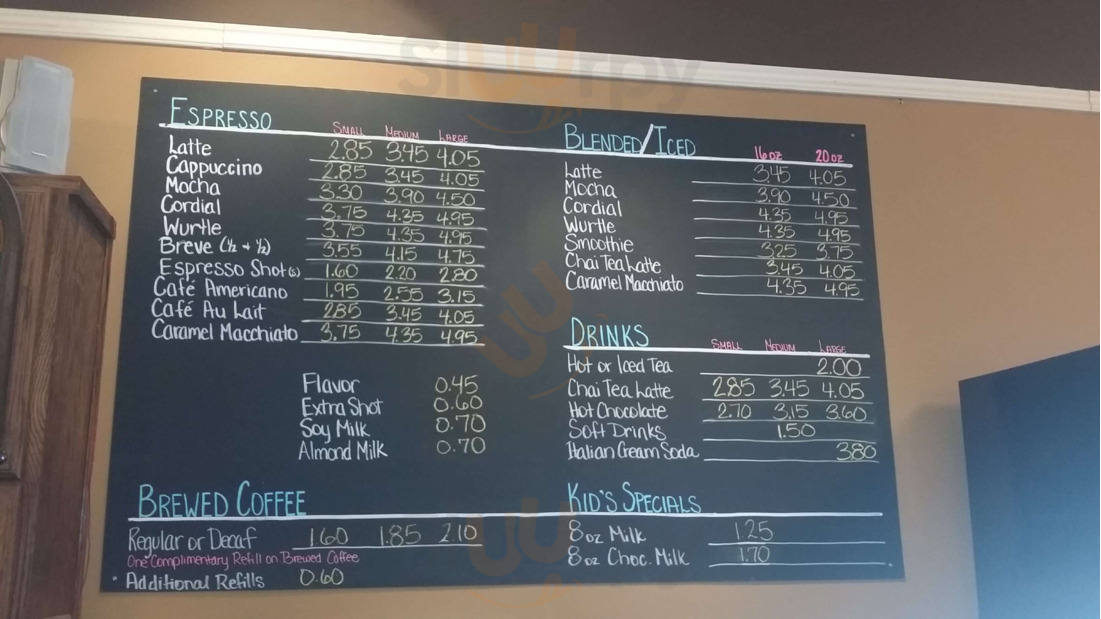 sluurpy
ESPRESSO
SMALL MEDIUM LARGE
Latte 2.85 3.45 4.05
Cappuccino 2.85 3.45 4.05
Mocha 3.30 3.90 4.50
Cordial 3.75 4.35 4.95
Wurtle 3.75 4.35 4.95
Breve (½ + ½) 3.55 4.15 4.75
Espresso Shot(s) 1.60 2.20 2.80
Café Americano 1.95 2.55 3.15
Café Au Lait 2.85 3.45 4.05
Caramel Macchiato 3.75 4.35 4.95
Flavor 0.45
Extra Shot 0.60
Soy Milk 0.70
Almond Milk 0.70
BREWED COFFEE
Regular or Decaf 1.60 1.85 2.10
One Complimentary Refill on Brewed Coffee
Additional Refills 0.60
BLENDED/ICED
16 oz 20 oz
Latte 3.45 4.05
Mocha 3.90 4.50
Cordial 4.35 4.95
Wurtle 4.35 4.95
Smoothie 3.25 3.75
Chai Tea Latte 3.45 4.05
Caramel Macchiato 4.35 4.95
DRINKS
SMALL MEDIUM LARGE
Hot or Iced Tea 2.00
Chai Tea Latte 2.85 3.45 4.05
Hot Chocolate 2.70 3.15 3.60
Soft Drinks 1.50
Italian Cream Soda 3.80
KID'S SPECIALS
8 oz Milk 1.25
8 oz Choc. Milk 1.70